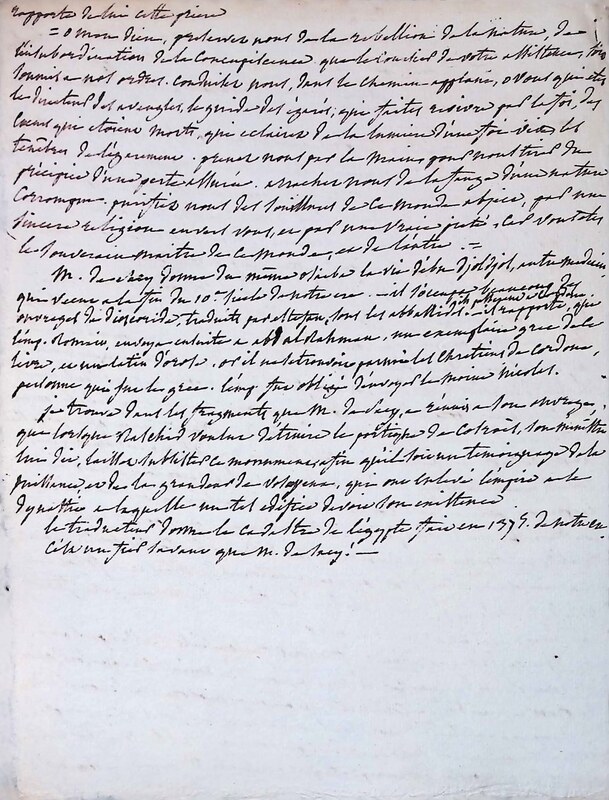 rapporte de lui cette priere
= o mon dieu, preservez nous de la rebellion de la nature, de
l'insubordination de la concupiscence
soumis a nos ordres. conduisez nous, dans le chemin applani, o vous qui etes
le directeur des aveugles, le guide des egarés, qui faites revivre par la foi, des
coeurs qui etoient morts, qui eclairez de la lumiere d'une foi vive les
tenebres de l'egarement. prenez nous par la main pour nous tirer du
precipice d'une perte assurée. arrachez nous de la fange d'une nature
corrompue. purifiez nous des souillures de ce monde abject, par une
sincere religion envers vous, et par une vraie pieté, car vous etes
le souverain maitre de ce monde, et de l'autre. =
M. de Sacy donne du même la vie d'ebn Djoldjol, autre medecin
qui vecut a la fin du 10e siecle de notre ere. — il s'occupa beaucoup des
ouvrages de dioscoride, traduits par estefan, sous les abbassides. il rapporte, que
l'emp. Romain, envoya ensuite a abd alrahman, un exemplaire grec de ce
livre, et un latin d'orose, or il ne se trouvoit parmi les chretiens de Cordoue,
personne qui sut le grec. l'emp. fut obligé d'envoyer le moine Nicolas.
je trouve dans les fragments que M. de Sacy, a reunis a son ouvrage,
que lorsque Raschid voulut detruire le portique de Cosroes, son ministre
lui dit, laissez subsister ce monument, afin qu'il soit un temoignage de la
puissance, et de la grandeur de vos ayeux, qui ont enlevé l'empire a la
dynastie a laquelle un tel edifice devoit son existence
le traducteur donne le cadastre de l'egypte fait en 1375. de notre ere.
c'est un fier savant que M. de Sacy! —